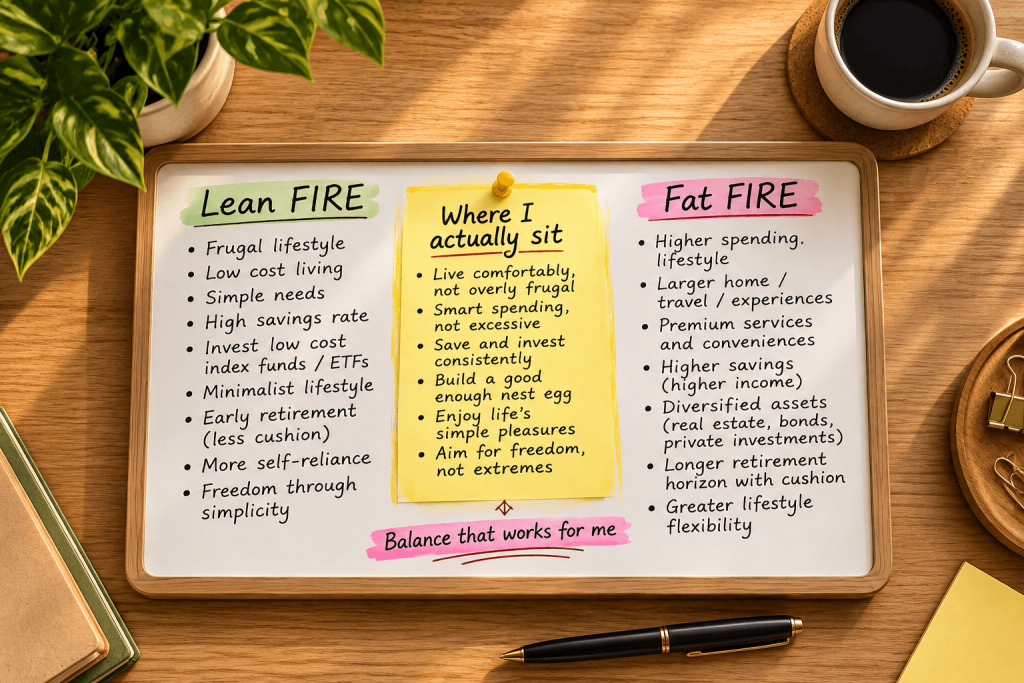 Lean FIRE
• Frugal lifestyle
• Low cost living
• Simple needs
• High savings rate
• Invest low cost
index funds / ETFs
• Minimalist lifestyle
• Early retirement
(less cushion)
• More self-reliance
• Freedom through
simplicity
Where I
actually sit
• Live comfortably,
not overly frugal
• Smart spending,
not excessive
• Save and invest
consistently
• Build a good
enough nest egg
• Enjoy life's
simple pleasures
• Aim for freedom,
not extremes
Balance that works for me
Fat FIRE
• Higher spending.
lifestyle
• Larger home /
travel / experiences
• Premium services
and conveniences
• Higher savings
(higher income)
• Diversified assets
(real estate, bonds,
private investments)
• Longer retirement
horizon with cushion
• Greater lifestyle
flexibility